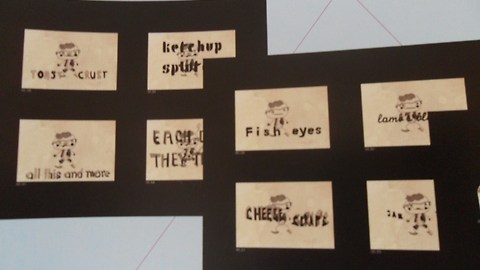 TOAST CRUST
ketchup
splurt
all this and more
EACH
THEY
Fish eyes
CHEESE SCRAPS
JAM